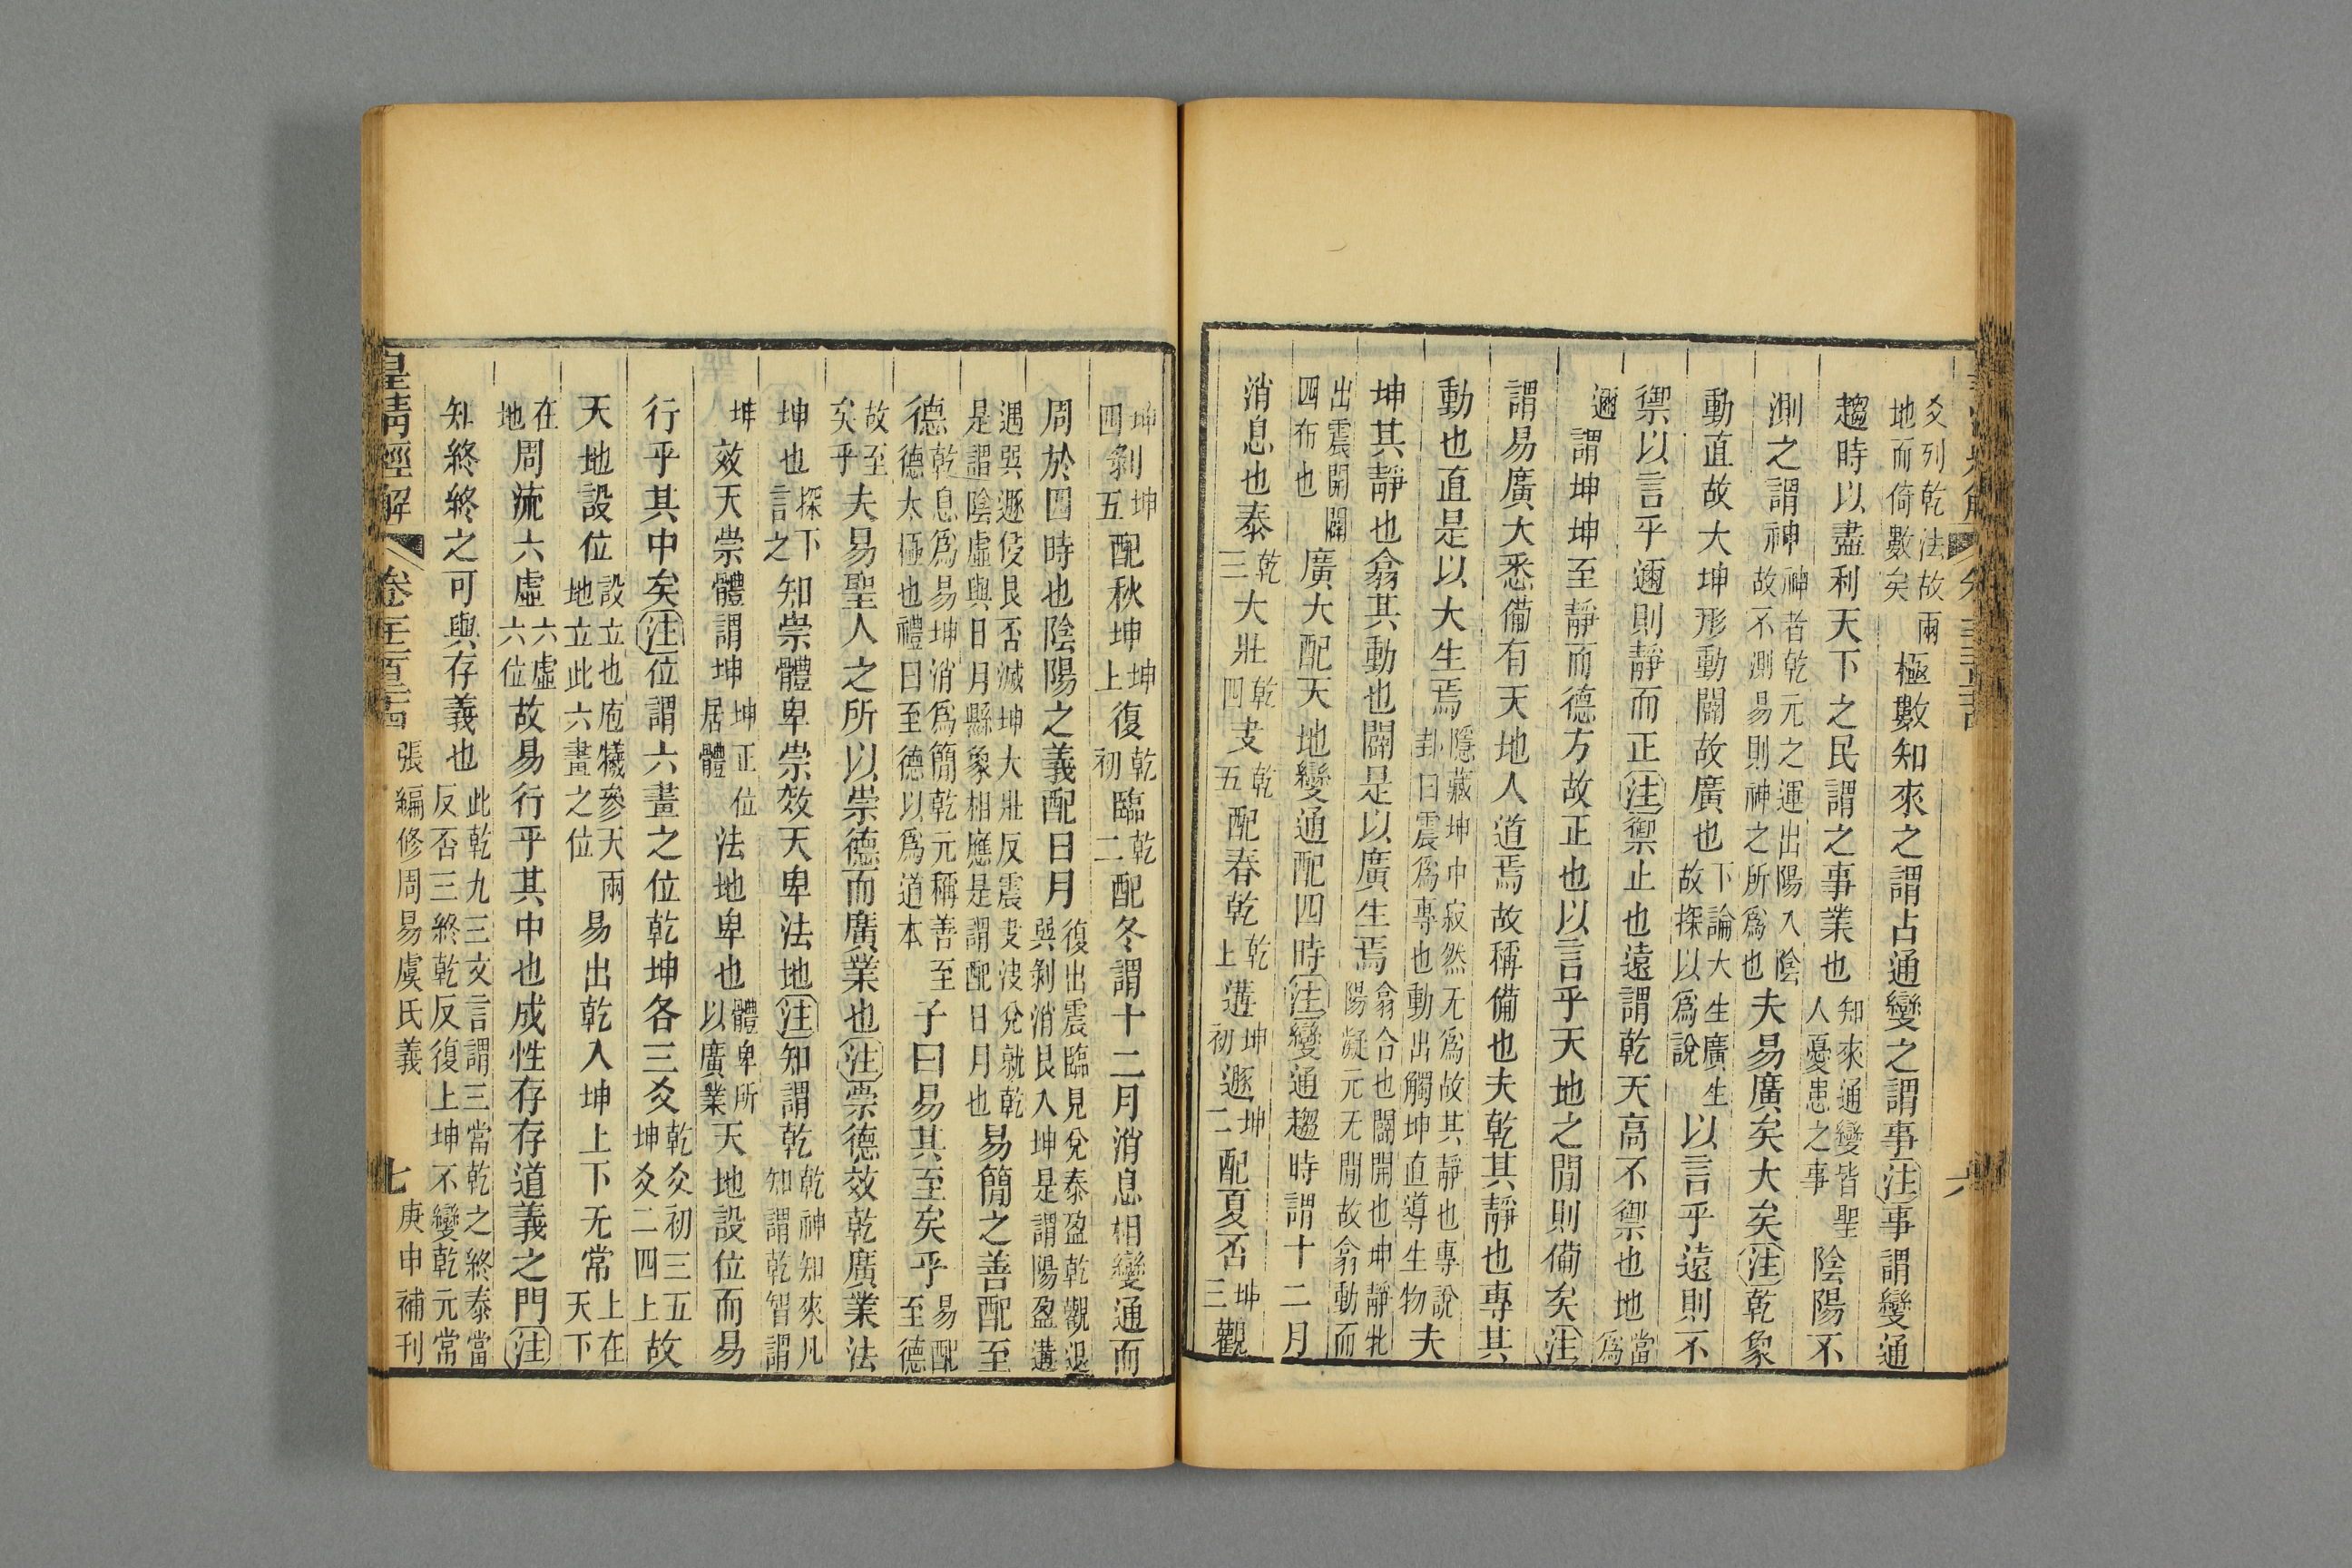 爻列乾法故兩地而倚數矣極數知來之謂占通變之謂事注事謂變通
趨時以盡利天下之民謂之事業也知來通變皆聖人憂患之事陰陽不
測之謂神神者乾元之運出陽入陰故不測易則神之所爲也夫易廣矣大矣注乾象
動直故大坤形動闢故廣也下論大生廣生故探以爲說以言乎遠則不
禦以言乎邇則靜而正注禦止也遠謂乾天高不禦也地當爲
邇謂坤坤至靜而德方故正也以言乎天地之閒則備矣注
謂易廣大悉備有天地人道焉故稱備也夫乾其靜也專其
動也直是以大生焉隱藏坤中寂然无爲故其靜也專說卦曰震爲專也動出觸坤直導生物夫
坤其靜也翕其動也闢是以廣生焉翕合也闢開也坤靜牝陽凝元无閒故翕動而
出震開闢四布也廣大配天地變通配四時注變通趨時謂十二月
消息也泰乾三大壯乾四夬乾五配春乾乾上遘坤初遯坤二配夏否坤三觀
六
坤四剝坤五配秋坤坤上復乾初臨乾二配冬謂十二月消息相變通而
周於四時也陰陽之義配日月復出震臨見兌泰盈乾觀退巽剝消艮入坤是謂陽盈遘
遇巽遯伇艮否滅坤大壯反震夬波兌就乾是謂陰虛與日月縣象相應是謂配日月也易簡之善配至
德乾息爲易坤消爲簡乾元稱善至德太極也禮曰至德以爲道本子曰易其至矣乎易配至德
故至矣乎夫易聖人之所以崇德而廣業也注崇德效乾廣業法
坤也探下言之知崇體卑崇效天卑法地注知謂乾乾神知來凡知謂乾智謂
坤效天崇體謂坤坤正位居體法地卑也體卑所以廣業天地設位而易
行乎其中矣注位謂六畫之位乾坤各三爻乾爻初三五坤爻二四上故
天地設位設立也庖犧參天兩地立此六畫之位易出乾入坤上下无常上在天下
在地周流六虛六虛六位故易行乎其中也成性存存道義之門注
知終終之可與存義也此乾九三文言謂三當乾之終泰當反否三終乾反復上坤不變乾元常
張編修周易虞氏義 庚申補刊
皇清經解 七